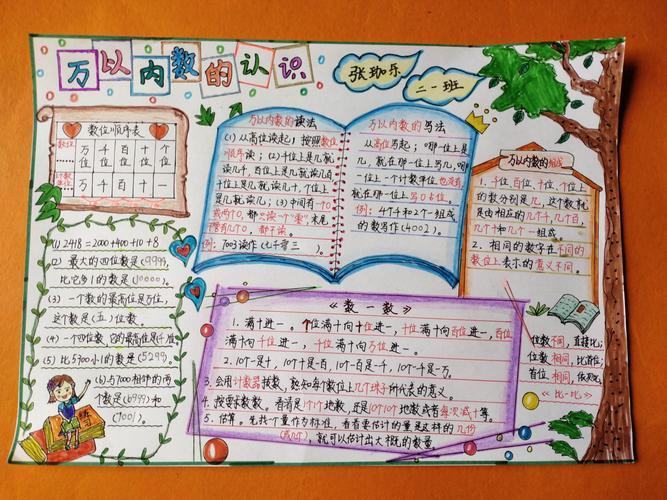 万以内数的认识
张珈乐
二一班
数位顺序表
数位
万位 千位 百位 十位 个位
计数单位
万 千 百 十 一
(1) 2418=2000+400+10+8
(2) 最大的四位数是(9999),
比它多1的数是(10000)。
(3) 一个数的最高位是万位,
这个数是(五)位数
(4) 一个四位数,它的最高位是千位
(5) 比5300小1的数是(5299)。
(6) 与7000相邻的两
个数是(6999)和
(7001)。
万以内数的读法
(1) 从高位读起;按照数位
顺序读;(2) 千位上是几就
读几千,百位上是几就读几百
十位上是几就读几十,个位上
是几就读几;(3) 中间有一个0
或两个0,都只读一个"零";末尾
不管有几个0,都不读。
例:7003读作(七千零三)。
万以内数的写法
从高位写起;哪一位上是
几,就在那一位上写几,哪一
位上一个计数单位也没有,
就在那一位上写0占位。
例:4个千和2个一组成
的数写作(4002)。
万以内数的组成
1.千位,百位,十位,个位上
的数分别是几,这个数就
是由相应的几个千,几个百,
几个十和几个一组成
2.相同的数字在不同的
数位上表示的意义不同。
《数一数》
1.满十进一。个位满十向十位进一,十位满十向百位进一,百位
满十向千位进一,千位满十向万位进一。
2.10个一是十,10个十是一百,10个一百是一千,10个一千是一万。
3.会用计数器拨数,熟知每个数位上几个珠子所代表的意义。
4.按要求数数。看看是1个1个地数,还是10个10个地数或者每次减十等。
5.估算。先找个量作为标准,看看要估计的量是这样的几份
(或几个),就可以估计出大概的数量
位数不同,直接比;
位数相同,比首位;
首位相同,依次比
《比一比》